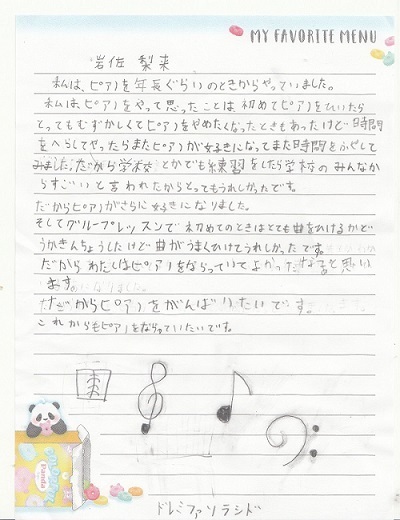 MY FAVORITE MENU
岩佐 梨来
私は、ピアノを年長ぐらいのときからやっていました。
私は、ピアノをやって思ったことは初めてピアノをひいたら
とってもむずかしくてピアノをやめたくなったときもあったけど時間
をへらしてやったらまたピアノが好きになってまた時間をふやして
みました。だから学校とかでも練習をしたら学校のみんなか
らすごいと言われたからとってもうれしかったです。
だからピアノがさらに好きになりました。
そしてグループレッスンで初めてのときはとても曲をひけるかど
うかきんちょうしたけど曲がうまくひけてうれしかったです。
だからわたしはピアノをならっていてよかったなると思い
ます。
だからピアノをがんばりたいです。
これからもピアノをならっていたいです。
Panda
ドレミファソラシド